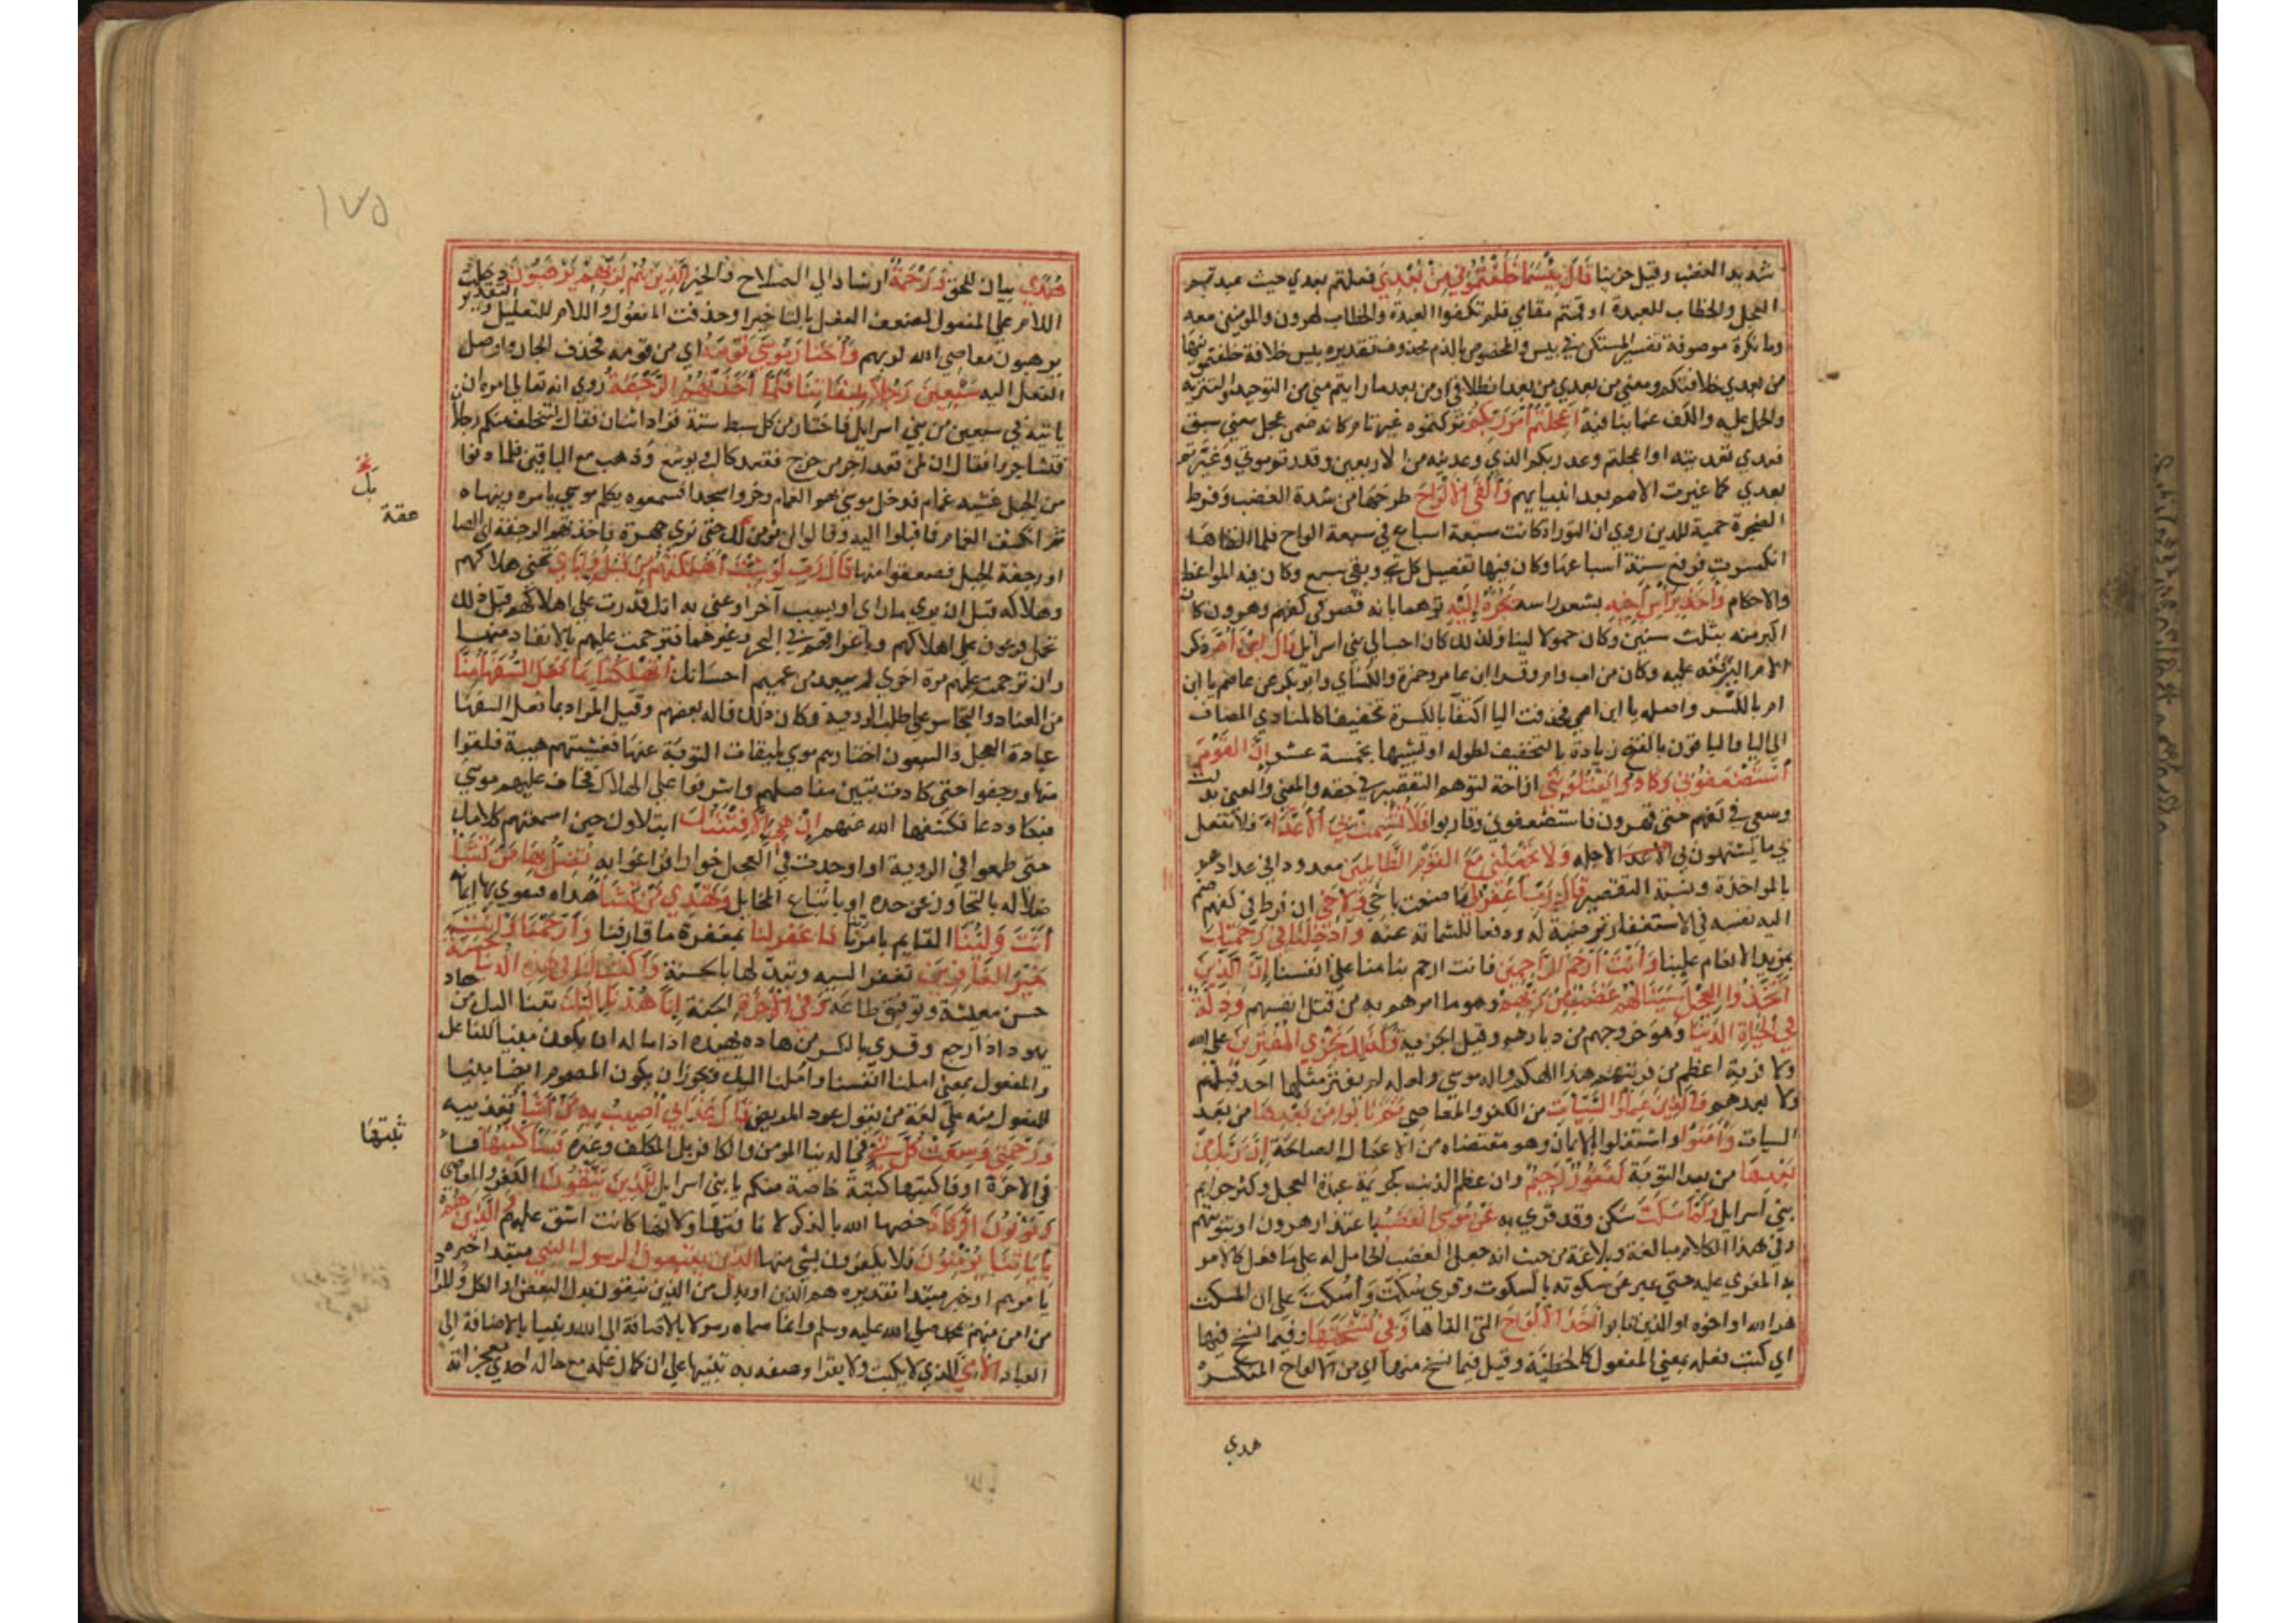 شديد الغضب وقيل حزينا قال بيسما خلفتموني من بعدي فعلتم بعدي حيث عبدتم
العجل والخطاب للعبدة او قمتم مقامي فلم تكفوا العبدة والخطاب لهرون والمومنين معه
وما نكرة موصوفة تفسر المستكن في بيس والمخصوص بالذم محذوف تقديره بيس خلافة خلفتمونيها
من بعدي خلافتكم ومعني من بعدي من بعد انطلاقي او من بعد ما رايتم مني من التوحيد والتنزيه
والحمل عليه والكف عما ينافيه اعجلتم امر ربكم تركتموه غير تام كانه ضمن عجل معني سبق
فعدي تعديته او اعجلتم وعد ربكم الذي وعدنيه من الاربعين وقدرتم موتي وغيرتم
بعدي كما غيرت الامم بعد انبيايهم والقي الالواح طرحها من شدة الغضب وفرط
الضجرة حمية للدين روي ان التوراة كانت سبعة اسباع في سبعة الواح فلما القاها
انكسرت فرفع ستة اسباعها وكان فيها تفصيل كل شي وبقي سبع وكان فيه المواعظ
والاحكام واخذ براس اخيه بشعر راسه يجره اليه توهما بانه قصر في كفهم وهرون كان
اكبر منه بثلث سنين وكان حمولا لينا ولذلك كان احب الي بني اسرايل قال ابن ام ذكر
الام ليرققه عليه وكان من اب وام وقرا ابن عامر وحمزة والكساي وابو بكر عن عاصم يا ابن
ام بالكسر واصله يا ابن امي فحذفت اليا اكتفا بالكسرة تخفيفا كالمنادي المضاف
الي اليا والباقون بالفتح زيادة بالتخفيف لطوله او تشبيها بخمسة عشر ان القوم
استضعفوني وكادوا يقتلونني ازاحة لتوهم التقصير في حقه والمعني
وسعي في كفهم حتي قهرون فاستضعفوني وقاربوا فلا تشمت بي الاعدا فلا تفعل
بي ما يشمتون بي لاجله ولا تجعلني مع القوم الظالمين معدودا في عدادهم
بالمواخذة ونسبة التقصير قال رب اغفر لي ما صنعت باخي ولاخي ان فرط في كفهم ضم
اليه نفسه في الاستغفار ترضية له ودفعا للشماتة عنه وادخلنا في رحمتك
بمزيد الانعام علينا وانت ارحم الراحمين فانت ارحم بنا منا علي انفسنا ان الذين
اتخذوا العجل سينالهم غضب من ربهم وهو ما امرهم به من قتل انفسهم وذلة
في الحياة الدنيا وهو خروجهم من ديارهم وقيل الجزية وكذلك نجزي المفترين علي الله
ولا فرية اعظم من فريتهم هذا الهكم واله موسي ولعله لم يفتر مثلها احد قبلهم
ولا بعدهم والذين عملوا السيات من الكفر والمعاصي ثم تابوا من بعدها من بعد
السيات وامنوا واشتغلوا بالايمان وهو مقتضاه من الاعمال الصالحة ان ربك من
بعدها من بعد التوبة لغفور رحيم وان عظم الذنب كجريمة عبدة العجل وكثر جرايم
بني اسرايل ولما سكت سكن وقد قري به عن موسي الغضب باعتذار هرون او بتوبتهم
وفي هذا الكلام مبالغة وبلاغة من حيث انه جعل الغضب الحامل له علي ما فعل كالامر
به المغري عليه حتي عبر عن سكوته بالسكوت وقري سكت واسكت علي ان المسكت
هو الله او اخوه او الذين تابوا اخذ الالواح التي القاها وفي نسختها وفيما نسخ فيها
اي كتب فعله بمعني المفعول كالخطبة وقيل فيما نسخ منها اي من الالواح المنكسرة
هدي
١٧٥
هدي بيان للحق ورحمة ارشاد الي الصلاح والخير للذين هم لربهم يرهبون دخلت
اللام علي المفعول لضعف الفعل بالتاخير او حذفت المفعول واللام للتعليل والتقدير
يرهبون معاصي الله لربهم واختار موسي قومه اي من قومه فحذف الجار واوصل
الفعل اليه سبعين رجلا لميقاتنا فلما اخذتهم الرجفة روي انه تعالي امره ان
ياتيه في سبعين من بني اسرايل فاختار من كل سبط ستة فزاد اثنان فقال ليتخلف منكم رجلان
فتشاجروا فقال ان لمن قعد اجر من خرج فقعد كالب ويوشع وذهب مع الباقين فلما دنوا
من الجبل غشيه غمام فدخل موسي بهم الغمام وخروا سجدا فسمعوه يكلم موسي يامره وينهاه
ثم انكشف الغمام فاقبلوا اليه وقالوا لن نومن لك حتي نري جهرة فاخذتهم الرجفة اي الصا
عقة
او رجفة الجبل فصعقوا منها قال رب لو شيت اهلكتهم من قبل واياي تمني هلاكهم
وهلاكه قبل ان يري ما راي او بسبب اخر او عني به انك قدرت علي اهلاكهم قبل ذلك
بحمل فرعون علي اهلاكهم وباغراقهم في البحر وغيرهما فترحمت عليهم بالانقاذ منها
وان ترحمت عليهم مرة اخري لم يبعد من عميم احسانك اتهلكنا بما فعل السفها منا
من العناد والتجاسر علي طلب الروية وكان ذلك قاله بعضهم وقيل المراد بما فعل السفها
عبادة العجل والسبعون اختارهم موسي لميقات التوبة عنها فغشيتهم هيبة فلقوا
منها ورجفوا حتي كادت تبين مفاصلهم واشرفوا علي الهلاك فخاف عليهم موسي
فبكا ودعا فكشفها الله عنهم ان هي الا فتنتك ابتلاوك حين اسمعتهم كلامك
حتي طمعوا في الروية او اوجدت في العجل خوارا فزاغوا به تضل بها من تشا
ضلاله بالتجاوز عن حده او باتباع المخايل وتهدي من تشا هداه فيقوي بها ايمانه
انت ولينا القايم بامرنا فاغفر لنا بمغفرة ما قارفنا وارحمنا وانت
خير الغافرين تغفر السيه وتبدلها بالحسنة واكتب لنا في هذه الدنيا حسنة
حسن معيشة وتوفيق طاعة وفي الاخرة الجنة انا هدنا اليك تبنا اليك من هاد
يهود اذا رجع وقري بالكسر من هاده يهيده اذا اماله ان يكون مبنيا للفاعل
والمفعول بمعني املنا انفسنا واملنا اليك ويجوز ان يكون المضموم ايضا مبنيا
للمفعول منه علي لغة من يقول عود المريض قال عذابي اصيب به من اشا تعذيبه
ورحمتي وسعت كل شي في الدنيا المومن والكافر بل المكلف وغيره فساكتبها
ثبتها
في الاخرة او فاكتبها كتبة خاصة منكم يا بني اسرايل للذين يتقون الكفر والمعاصي
ويوتون الزكاة خصها الله بالذكر لانها كانت اشق عليهم والذين هم
باياتنا يومنون فلا يكفرون بشي منها الذين يتبعون الرسول النبي مبتدا خبره
يامرهم او خبر مبتدا تقديره هم الذين او بدل من الذين يتقون بدل البعض او الكل والمراد
من امن منهم بمحمد صلي الله عليه وسلم وانما سماه رسولا بالاضافة الي الله ونبيا بالاضافة الي
العباد الامي الذي لا يكتب ولا يقرا وصفه به تنبيها علي ان كمال علمه مع حاله احدي معجزاته